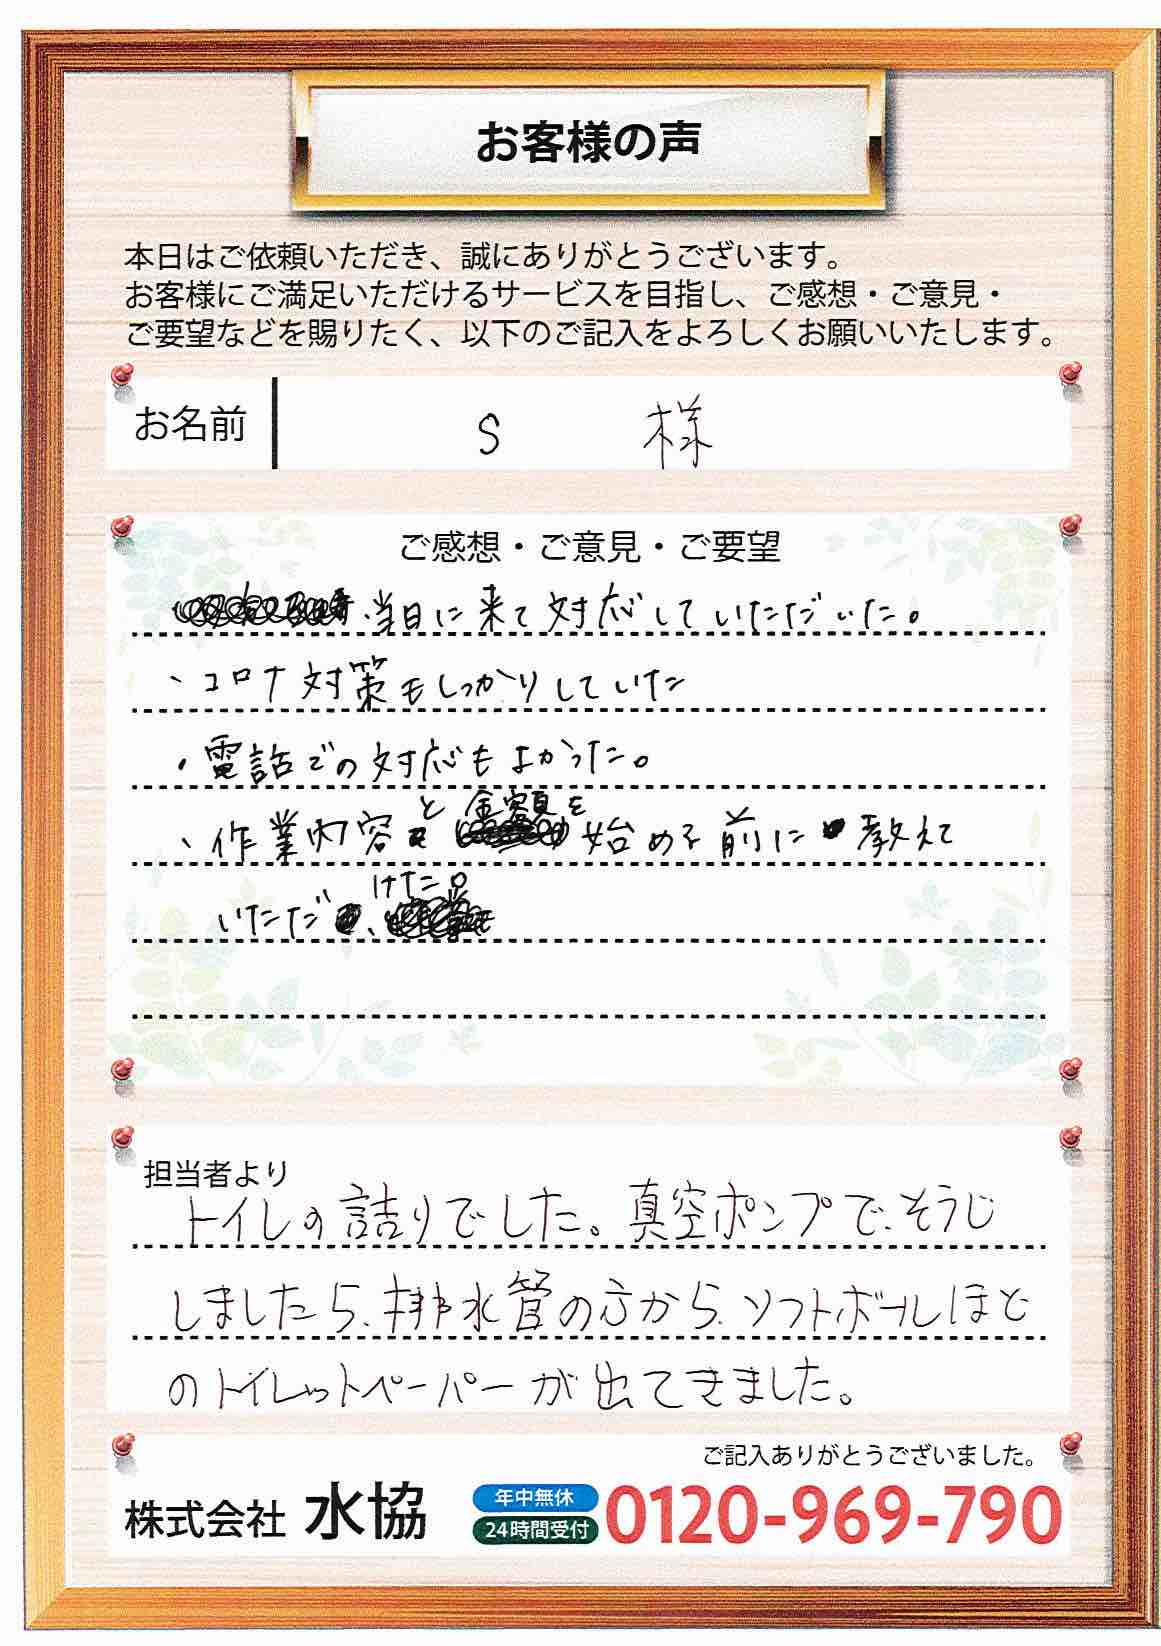 お客様の声
本日はご依頼いただき、誠にありがとうございます。
お客様にご満足いただけるサービスを目指し、ご感想・ご意見・
ご要望などを賜りたく、以下のご記入をよろしくお願いいたします。
お名前 S 様
ご感想・ご意見・ご要望
・当日に来て対応していただいた。
、コロナ対策もしっかりしていた
・電話での対応もよかった。
、作業内容と金額を始める前に教えて
いただけた。
担当者より
トイレの詰りでした。真空ポンプで、そうじ
しましたら、排水管の方から、ソフトボールほど
のトイレットペーパーが出てきました。
ご記入ありがとうございました。
株式会社 水協 年中無休 24時間受付 0120-969-790